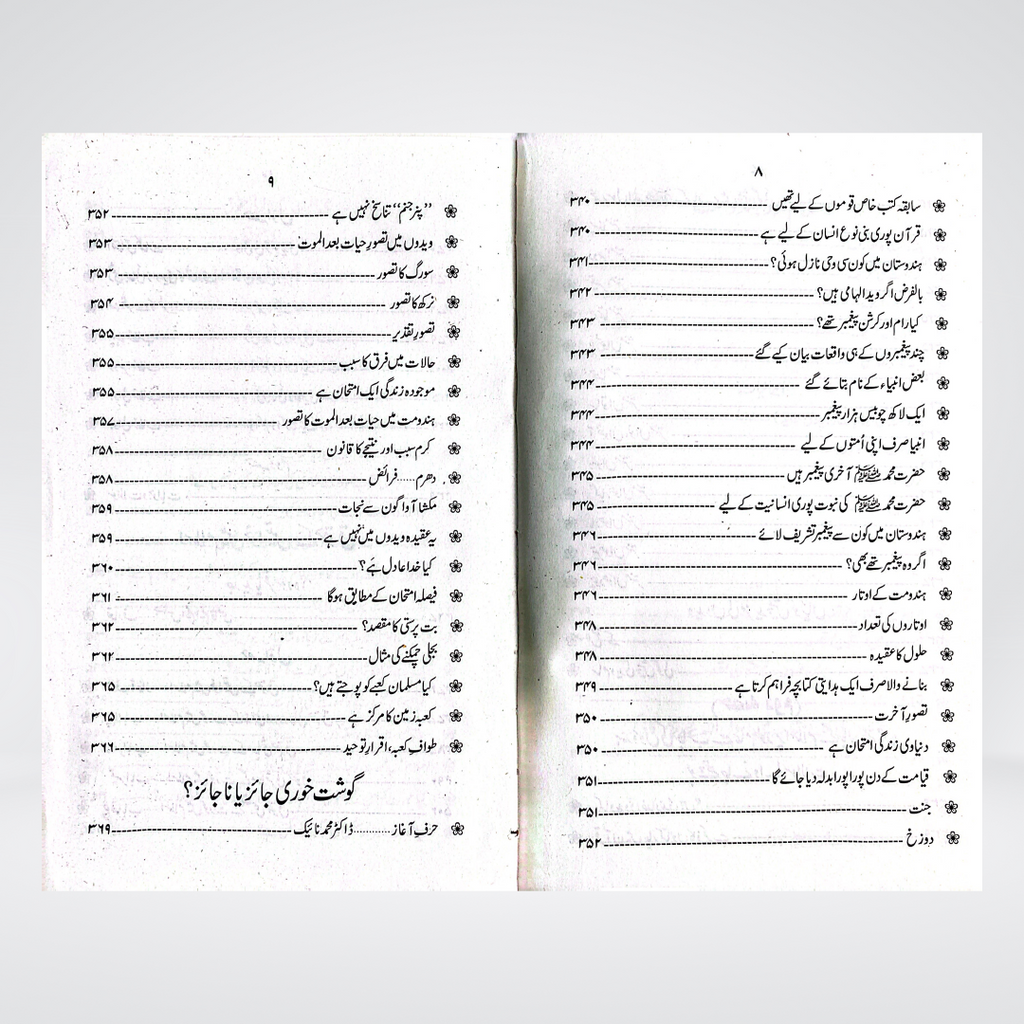 ۸
سابقہ کتب خاص قوموں کے لیے تھیں ۳۴۰
قرآن پوری بنی نوع انسان کے لیے ہے ۳۴۰
ہندوستان میں کون سی وحی نازل ہوئی؟ ۳۴۱
بالفرض اگر وید الہامی ہیں؟ ۳۴۲
کیا رام اور کرشن پیغمبر تھے؟ ۳۴۳
چند پیغمبروں کے ہی واقعات بیان کیے گئے ۳۴۳
بعض انبیاء کے نام بتائے گئے ۳۴۴
ایک لاکھ چوبیس ہزار پیغمبر ۳۴۴
انبیا صرف اپنی اُمتوں کے لیے ۳۴۴
حضرت محمد ﷺ آخری پیغمبر ہیں ۳۴۵
حضرت محمد ﷺ کی نبوت پوری انسانیت کے لیے ۳۴۵
ہندوستان میں کون سے پیغمبر تشریف لائے ۳۴۶
اگر وہ پیغمبر تھے بھی؟ ۳۴۶
ہندومت کے اوتار ۳۴۶
اوتاروں کی تعداد ۳۴۸
حلول کا عقیدہ ۳۴۸
بنانے والا صرف ایک ہدایتی کتابچہ فراہم کرتا ہے ۳۴۹
تصورِ آخرت ۳۵۰
دنیاوی زندگی امتحان ہے ۳۵۰
قیامت کے دن پورا پورا بدلہ دیا جائے گا ۳۵۱
جنت ۳۵۱
دوزخ ۳۵۲
۹
’’پنر جنم‘‘ تناسخ نہیں ہے ۳۵۲
ویدوں میں تصورِ حیات بعد الموت ۳۵۳
سورگ کا تصور ۳۵۳
نرکھ کا تصور ۳۵۴
تصورِ تقدیر ۳۵۵
حالات میں فرق کا سبب ۳۵۵
موجودہ زندگی ایک امتحان ہے ۳۵۵
ہندومت میں حیات بعد الموت کا تصور ۳۵۷
کرم سبب اور نتیجے کا قانون ۳۵۸
دھرم ...... فرائض ۳۵۸
مکشا آواگون سے نجات ۳۵۹
یہ عقیدہ ویدوں میں نہیں ہے ۳۵۹
کیا خدا عادل ہے؟ ۳۶۰
فیصلہ امتحان کے مطابق ہوگا ۳۶۱
بت پرستی کا مقصد؟ ۳۶۲
بجلی چمکنے کی مثال ۳۶۲
کیا مسلمان کعبے کو پوجتے ہیں؟ ۳۶۵
کعبہ زمین کا مرکز ہے ۳۶۵
طوافِ کعبہ، اقرارِ توحید ۳۶۶
گوشت خوری جائز یا ناجائز؟
حرفِ آغاز ............ ڈاکٹر محمد نائیک ۳۶۹